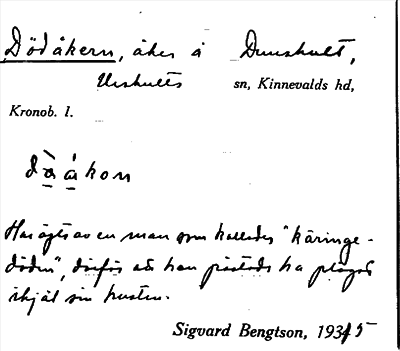 Dödåkern, åker å Dunshult,
Urshults sn, Kinnevalds hd,
Kronob. l.
dà̱ á̱kon
Har ägts av en man som kallades "käringe-
döden", därför att han påstods ha plågat
ihjäl sin hustru.
Sigvard Bengtson, 1935